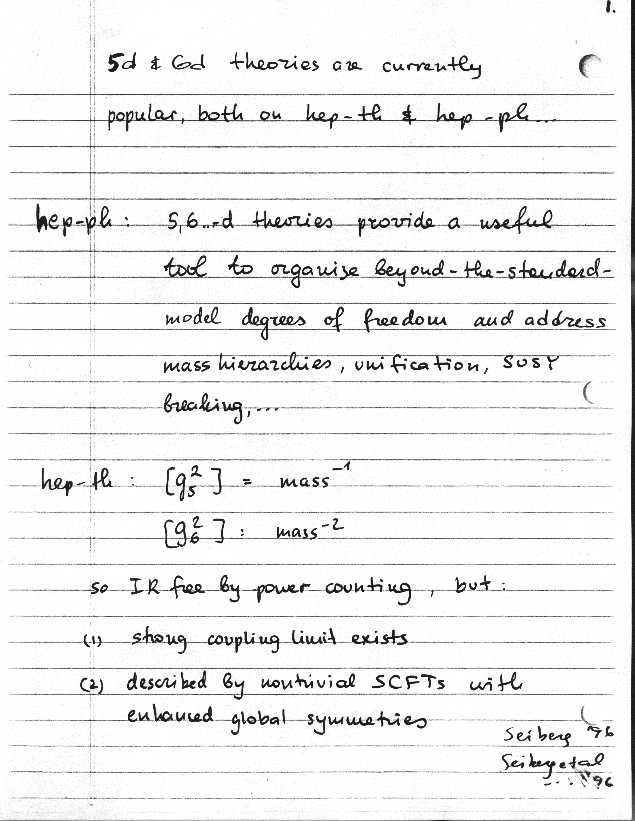 1.
5d & 6d theories are currently
popular, both on hep-th & hep-ph...
hep-ph: 5,6..-d theories provide a useful
tool to organize beyond-the-standard-
model degrees of freedom and address
mass hierarchies, unification, SUSY
breaking,...
hep-th: [g₅²] = mass⁻¹
[g₆²] : mass⁻²
so IR free by power counting, but:
(1) strong coupling limit exists
(2) described by nontrivial SCFTs with
enhanced global symmetries
Seiberg '96
Seiberg et al
...'96